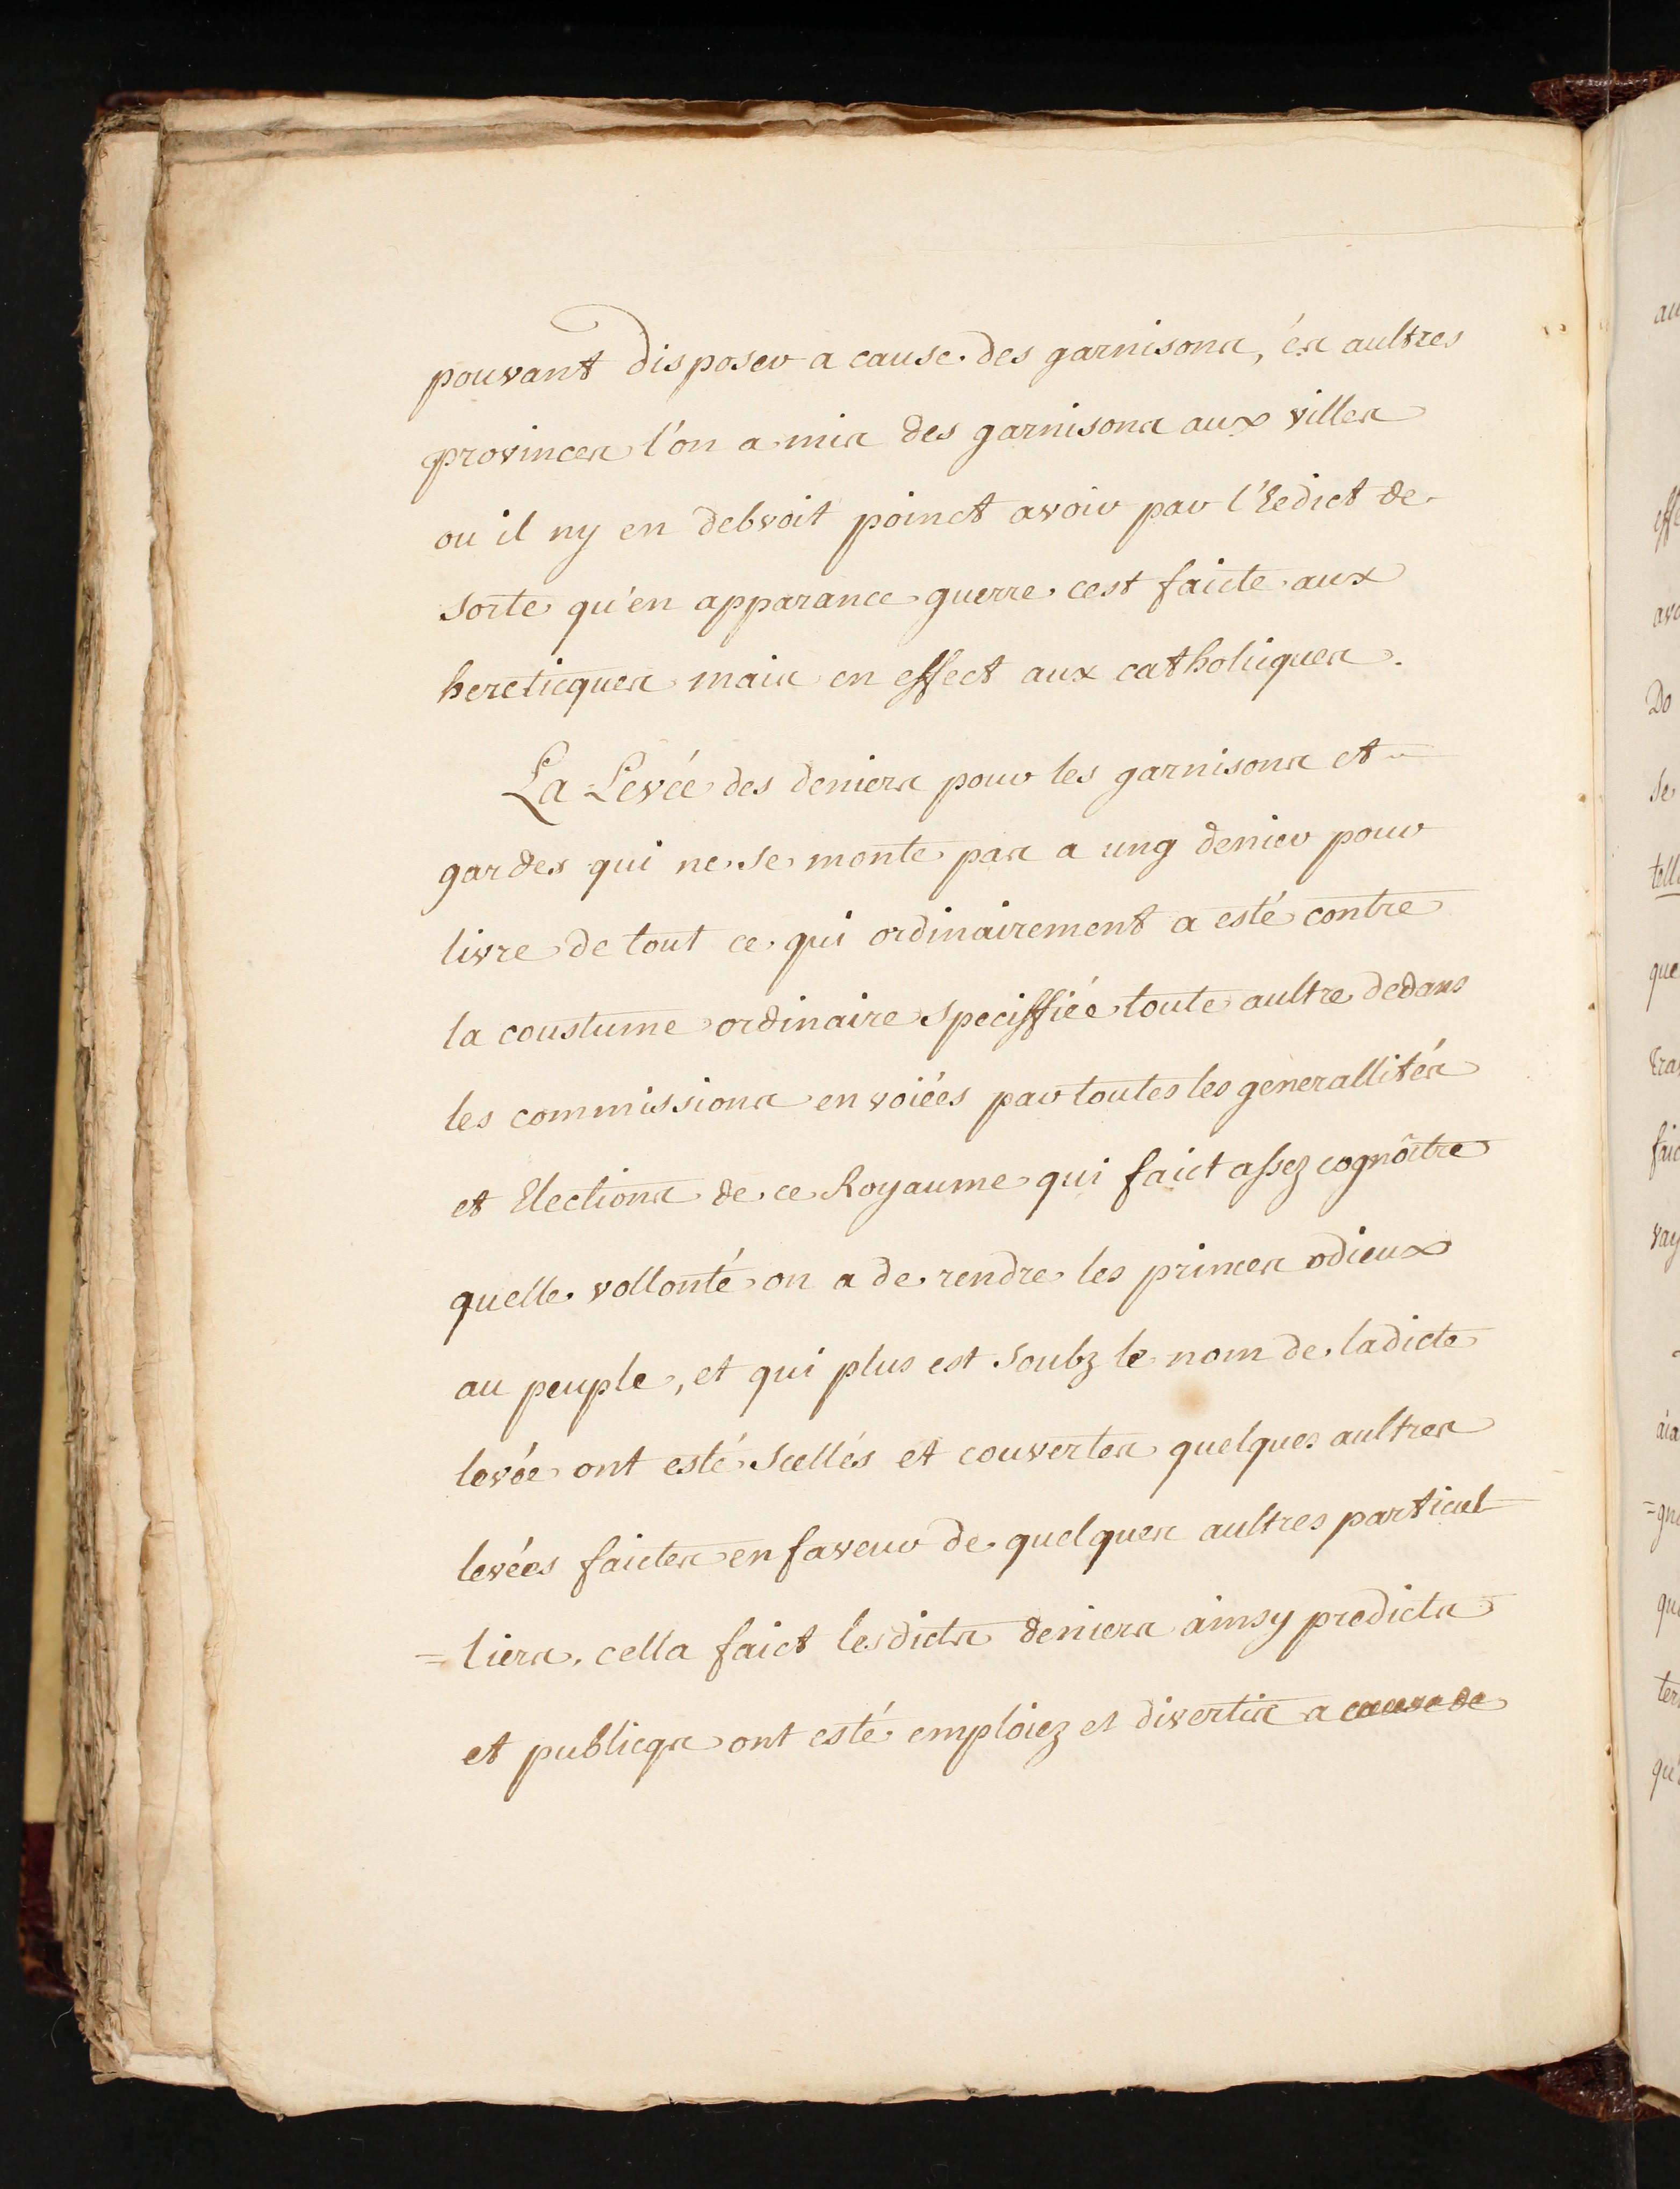 pouvant disposer a cause des garnisons, és aultres
provinces l'on a mis des garnisons aux villes
ou il ny en debvoit poinct avoir par l'Eedict de
sorte qu'en apparance guerre cest faicte aux
hereticques mais en effect aux catholicques.
La Levée des deniers pour les garnisons et
gardes qui ne se monte pas a ung denier pour
livre de tout ce qui ordinairement a esté contre
la coustume ordinaire speciffiée toute aultre dedans
les commissions envoiées par toutes les generallités
et Elections de ce Royaume qui faict assez cognoître
quelle vollonté on a de rendre les princes odieux
au peuple, et qui plus est soubz le nom de ladicte
levée ont esté scellés et couvertes quelques aultres
levées faictes en faveur de quelques aultres particul
=liers, cella faict lesdicts deniers ainsy predicts
et publicqs ont esté emploiez et divertis a cause de